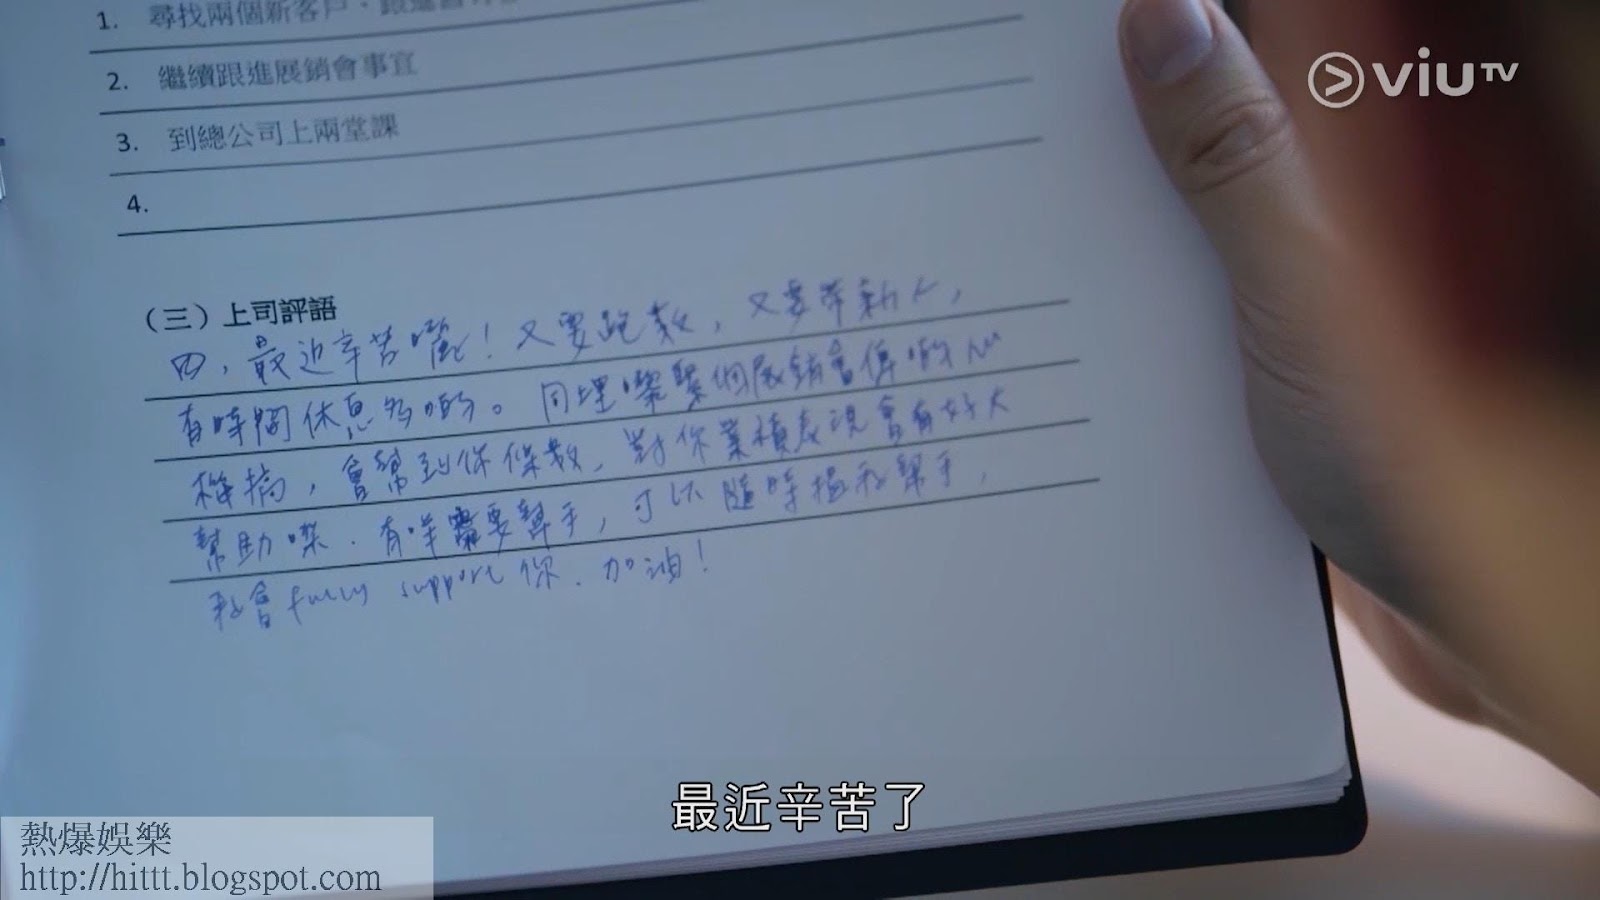 1. 尋找兩個新客戶,跟進
viuTV
2. 繼續跟進展銷會事宜
3. 到總公司上兩堂課
4.
(三)上司評語
四,最近辛苦嘥!又要跑數,又要帶新人,
有時間休息多啲。同埋嚟緊個展銷會俾啲心
機搞,會幫到你條數,對你業績表現會有好大
幫助㗎.有咩需要幫手,可以隨時搵我幫手,
我會fully support你.加油!
最近辛苦了
熱爆娛樂
http://hittt.blogspot.com